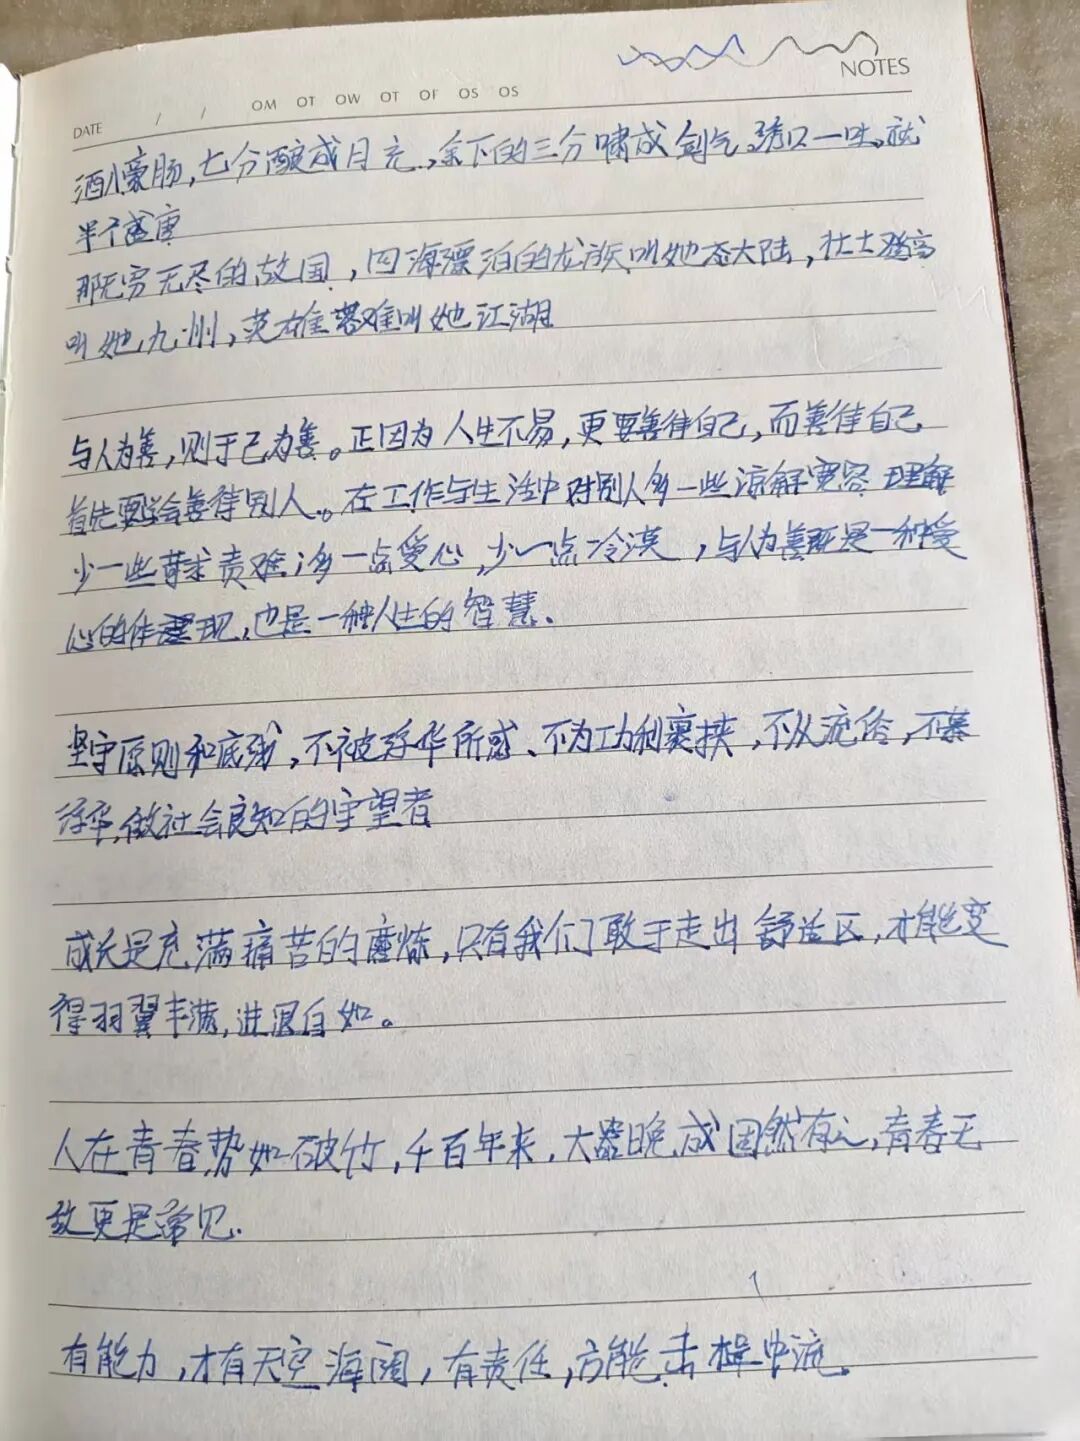 NOTES
DATE / / OM OT OW OT OF OS OS
酒入豪肠,七分酿成月光,余下的三分啸成剑气,绣口一吐,就
半个盛唐
那无穷无尽的故国,四海漂泊的龙族叫她态大陆,壮士登高
叫她九州,英雄落难叫她江湖
与人为善,则于己为善。正因为人生不易,更要善待自己,而善待自己
首先要学会善待别人。在工作与生活中对别人多一些谅解宽容理解
少一些苛求责难;多一点爱心,少一点冷漠,与人为善既是一种爱
心的体现,也是一种人生的智慧.
坚守原则和底线,不被浮华所惑、不为功利裹挟,不从流俗,不慕
浮华,做社会良知的守望者
成长是充满痛苦的磨炼,只有我们敢于走出舒适区,才能变
得羽翼丰满,进退自如。
人在青春势如破竹,千百年来,大器晚成固然有之,青春无
敌更是常见.
有能力,才有天空海阔,有责任,方能击楫中流.